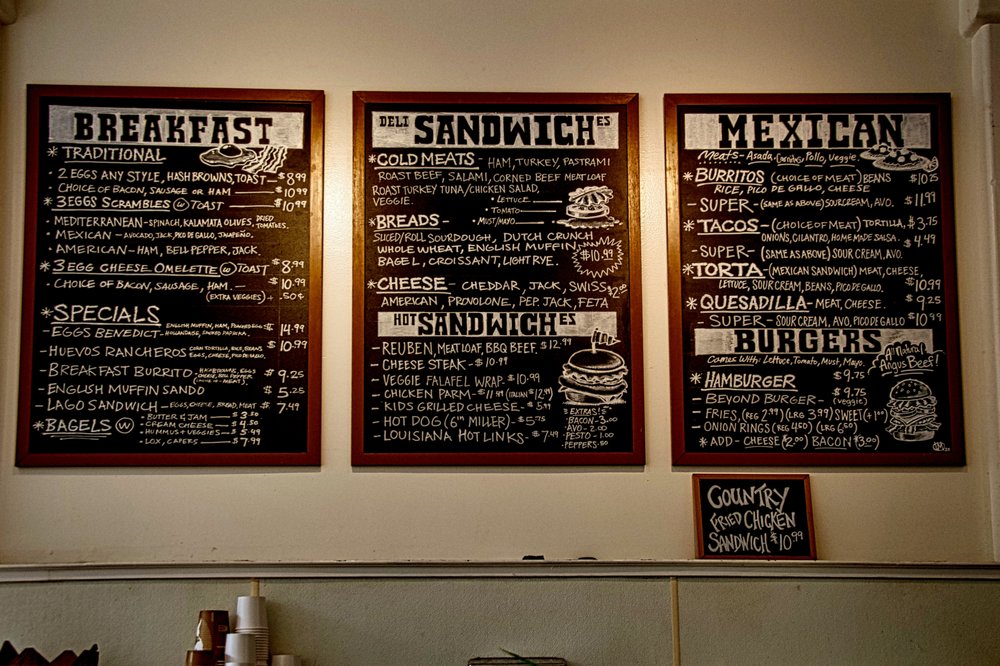 BREAKFAST
* TRADITIONAL
- 2 EGGS ANY STYLE, HASH BROWNS, TOAST - $8.99
- CHOICE OF BACON, SAUSAGE OR HAM — $10.99
* 3 EGGS SCRAMBLES W TOAST — $10.99
- MEDITERRANEAN - SPINACH, KALAMATA OLIVES, DRIED TOMATOES.
- MEXICAN - AVOCADO, JACK, PICO DE GALLO, JALAPEÑO.
- AMERICAN - HAM, BELL PEPPER, JACK
* 3 EGG CHEESE OMELETTE W TOAST $8.99
- CHOICE OF BACON, SAUSAGE, HAM. — $10.99
(EXTRA VEGGIES) + .50¢
* SPECIALS
- EGGS BENEDICT - ENGLISH MUFFIN, HAM, POACHED EGG $14.99
HOLLANDAISE, SMOKED PAPRIKA.
- HUEVOS RANCHEROS CORN TORTILLA, RICE, BEANS $10.99
EGGS, CHEESE, PICO DE GALLO.
- BREAKFAST BURRITO - HASHBROWNS, EGGS $9.25
CHEESE, BELL PEPPER
(CHOICE OF MEAT).
- ENGLISH MUFFIN SANDO $5.25
- LAGO SANDWICH - EGGS, CHEESE, BREAD, MEAT $7.49
* BAGELS W • BUTTER & JAM — $3.50
• CREAM CHEESE — $4.50
• HUMMUS & VEGGIES — $5.99
• LOX, CAPERS — $7.99
DELI SANDWICHES
* COLD MEATS - HAM, TURKEY, PASTRAMI
ROAST BEEF, SALAMI, CORNED BEEF MEATLOAF
ROAST TURKEY TUNA/CHICKEN SALAD,
VEGGIE.
• LETTUCE
• TOMATO
• MUST/MAYO
* BREADS -
SLICED/ROLL SOURDOUGH, DUTCH CRUNCH
WHOLE WHEAT, ENGLISH MUFFIN
BAGEL, CROISSANT, LIGHT RYE.
$10.99
* CHEESE - CHEDDAR, JACK, SWISS $2.00
AMERICAN, PROVOLONE, PEP JACK, FETA
HOT SANDWICHES
- REUBEN, MEATLOAF, BBQ BEEF. $12.99
- CHEESE STEAK - $10.99
- VEGGIE FALAFEL WRAP - $10.99
- CHICKEN PARM - $11.99 (ITALIAN $12.99)
- KIDS GRILLED CHEESE - $5.99
- HOT DOG (6" MILLER) - $5.75
- LOUISIANA HOT LINKS - $7.49
EXTRAS!
BACON - 3.00
AVO - 2.00
PESTO - 1.00
PEPPERS .50
MEXICAN
Meats - Asada, Carnitas, Pollo, Veggie.
* BURRITOS (CHOICE OF MEAT) BEANS $10.25
RICE, PICO DE GALLO, CHEESE
- SUPER - (SAME AS ABOVE) SOUR CREAM, AVO. $11.99
* TACOS - (CHOICE OF MEAT) TORTILLA, $3.75
ONIONS, CILANTRO, HOMEMADE SALSA.
- SUPER - (SAME AS ABOVE) SOUR CREAM, AVO. $4.49
* TORTA - (MEXICAN SANDWICH) MEAT, CHEESE,
LETTUCE, SOUR CREAM, BEANS, PICO DE GALLO. $10.99
* QUESADILLA - MEAT, CHEESE. $9.25
SUPER - SOUR CREAM, AVO, PICO DE GALLO $10.99
BURGERS
Comes with: Lettuce, Tomato, Must, Mayo.
All Natural Angus Beef!
* HAMBURGER $9.75
- BEYOND BURGER - $9.75
(Veggie)
- FRIES, (REG 2.99) (LRG 3.99) SWEET (+1.00)
- ONION RINGS (REG 4.50) (LRG 6.50)
* ADD - CHEESE ($2.00) BACON ($3.00)
COUNTRY
FRIED CHICKEN
SANDWICH $10.99